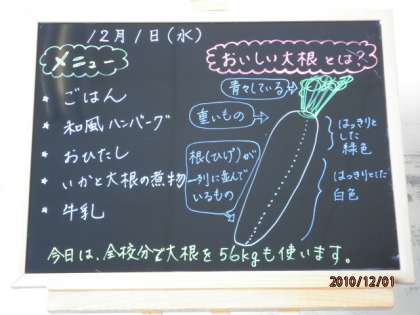 12月1日(水)
メニュー
* ごはん
* 和風ハンバーグ
* おひたし
* いかと大根の煮物
* 牛乳
おいしい大根とは?
青々している
重いもの
根(ひげ)が
一列に並んで
いるもの
はっきりと
した
緑色
はっきりとした
白色
今日は、全校分で大根を56kgも使います。
2010/12/01